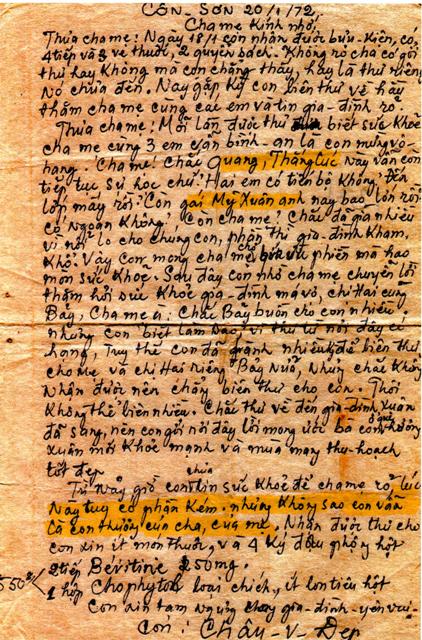 CÔN - SƠN 20/1/72
Cha mẹ kính nhớ!
Thưa cha mẹ! Ngày 18/1 con nhận được bưu-kiện, có,
4 tiếp và 3 vé thuốc, 2 quyển sách. Không rõ cha có gởi
thư hay không mà con chẳng thấy, hay là thư riêng
nó chưa đến. Nay gặp kỳ con biên thư về hầy
thăm cha mẹ cùng các em và tin gia-đình rõ.
Thưa cha mẹ! Mỗi lần được thư biết sức khỏe
cha mẹ cùng 3 em vẫn bình-an là con mừng vô
hạng. Cha mẹ! Chắc Quang, Thắng lúc này vẫn còn
tiếp tục sự học chứ! Hai em có tiến bộ không. Đến
lớp mấy rồi. Còn gái Mỹ Xuân anh nay bao lớn rồi
có ngoan không! Còn cha mẹ! Chắc đã già nhiều
vì nỗi lo cho chúng con, phần thì gia-đình kham,
khổ. Vậy con mong cha mẹ phiền mà hao
mòn sức khỏe. Sau đây con nhờ cha mẹ chuyển lời
thăm hỏi sức khỏe gia-đình má vợ, chị Hai cùng
Bảy, Cha mẹ ạ! Chắc Bảy buồn cho con nhiều
nhưng con biết làm sao, vì thư từ nơi đây có
hạng, Tuy thế con đã giành nhiều kỳ để biên thư
cho Mẹ và chị Hai riêng Bảy nữa, nhưng chắc không
nhận được nên chẳng biên thư cho con. Thôi
không thể biên nhiều. Chắc thư về đến gia-đình Xuân
đã sang, nên con gởi nơi đây lời mong ước bà con hưởng
xuân mới khỏe mạnh và mùa màng thu-hoạch
tốt đẹp
Từ nầy giờ con tin sức khỏe để cha mẹ rõ, lúc
này tuy có phần kém. nhưng không sao con vẫn
là con thương của cha, của mẹ. Nhận được thư cho
con xin ít món thuốc, và 4 ký đậu phộng hột
2 tiếp Bévitine 250mg.
1 hộp Chophyton loại chích, ít lon tiêu hột
Con xin tạm ngừng gia-đình-yên-vui.
Con: Châu-V-Đẹp